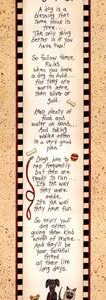 A dog is a
blessing that
some think is
true...
The only thing
better is if you
have two!
So follow these
rules
when you have
a dog to hold...
for they are
worth more
than silver or
gold.
Keep plenty of
food and
water on hand,
And taking
walks often
is a very good
plan.
Dogs like to
nap frequently
but then are
ready to run...
It's the way
they were
made,
It's the way
they have fun.
So enjoy your
dog often
giving them kind
words of praise...
And they'll be
your faithful
friend
all of their live
long days.